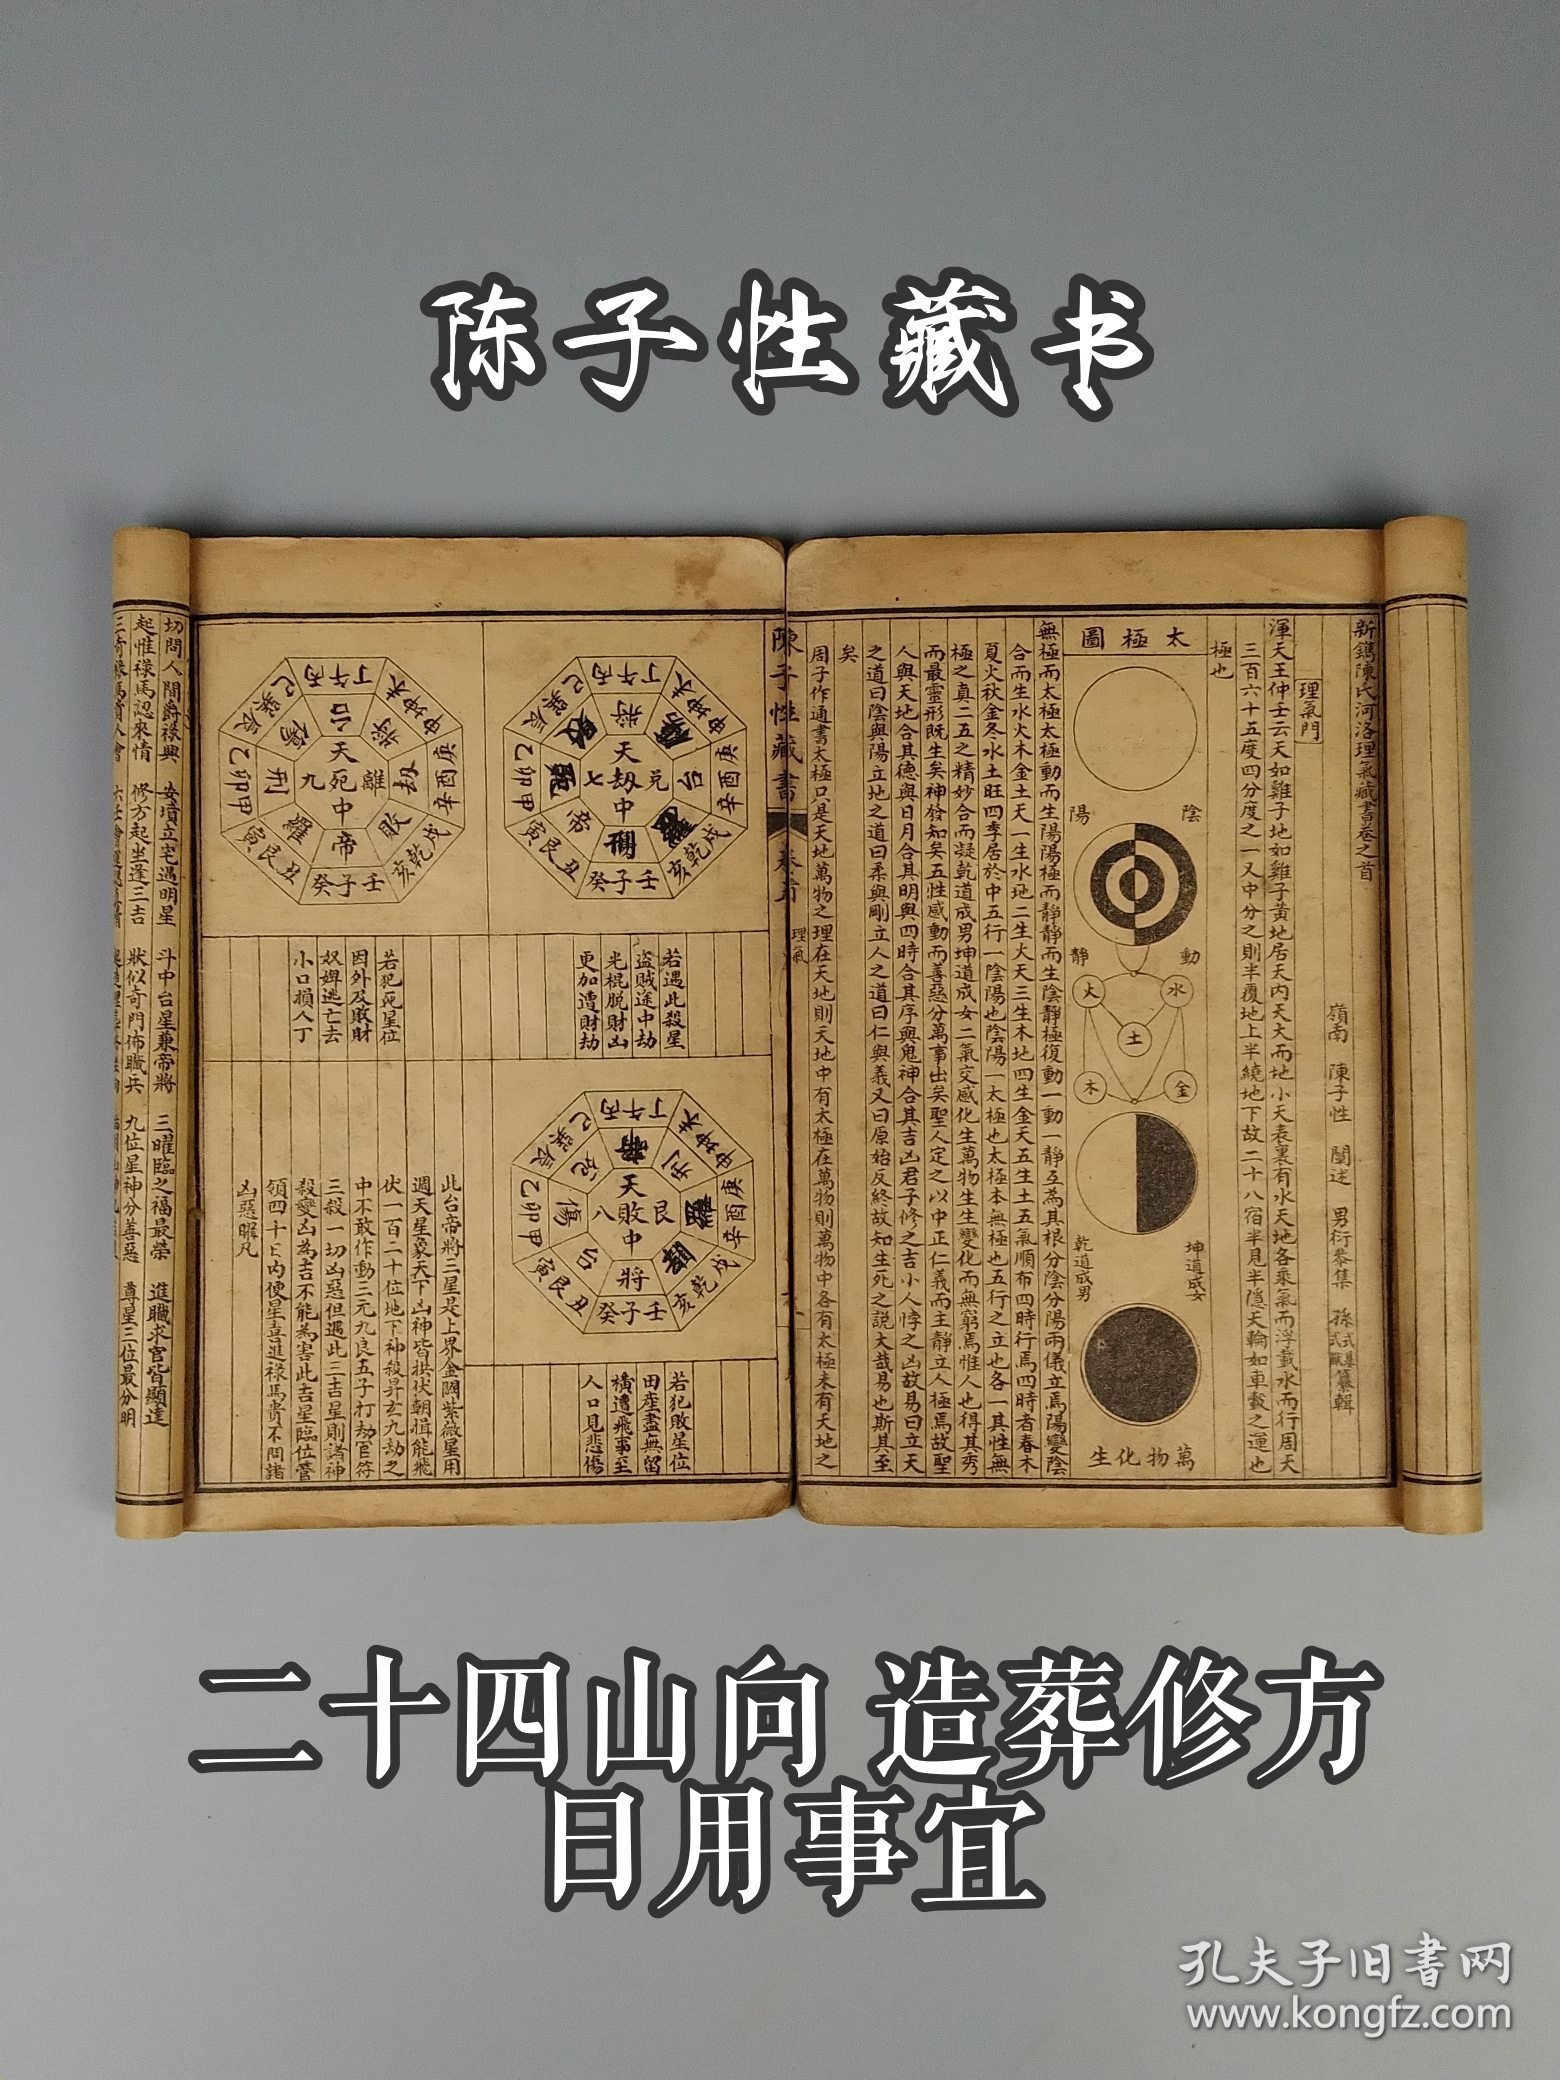 陈子性藏书
新鐫陳氏河洛理氣藏書卷之首
嶺南 陳子性 闡述 男衍參集 孫
纂輯
理氣門
渾天王仲壬云天如雞子地如雞子黃地居天內天大而地小天表裏有水天地各乘氣而浮載水而行周天
三百六十五度四分度之一又中分之則半覆地上半繞地下故二十八宿半見半隱天輪如車轂之運也
極也
太極圖
陰
陽
動
靜
水
火
土
金
木
坤道成女
乾道成男
萬物化生
無極而太極太極動而生陽陽極而靜靜而生陰靜極復動一動一靜互為其根分陰分陽兩儀立焉陽變陰
合而生水火木金土天一生水地二生火天三生木地四生金天五生土五氣順布四時行焉四時者春木
夏火秋金冬水土旺四季居於中五行一陰陽也陰陽一太極也太極本無極也五行之立也各一其性無
極之真二五之精妙合而凝乾道成男坤道成女二氣交感化生萬物生生變化而無窮焉惟人也得其秀
而最靈形既生矣神發知矣五性感動而善惡分萬事出矣聖人定之以中正仁義而主靜立人極焉故聖
人與天地合其德與日月合其明與四時合其序與鬼神合其吉凶君子修之吉小人悖之凶故易曰立天
之道曰陰與陽立地之道曰柔與剛立人之道曰仁與義又曰原始反終故知生死之說大哉易也斯其至
矣
周子作通書太極只是天地萬物之理在天地則天地中有太極在萬物則萬物中各有太極未有天地之
陳子性藏書
卷首
理氣
丁午丙
申坤未
庚酉辛
戌乾亥
壬子癸
丑艮寅
甲卯乙
辰巽巳
天劫中
兌
七
將
台
帝
若遇此殺星
盜賊途中劫
光棍脫財凶
更加遭財劫
丁午丙
申坤未
庚酉辛
戌乾亥
壬子癸
丑艮寅
甲卯乙
辰巽巳
天死中
離
九
台
將
劫
敗
帝
羅
刑
若犯死星位
因外及敗財
奴婢逃亡去
小口損人丁
丁午丙
申坤未
庚酉辛
戌乾亥
壬子癸
丑艮寅
甲卯乙
辰巽巳
天敗中
艮
八
刑
將
台
傷
死
若犯敗星位
田產盡無留
橫遭飛事至
人口見悲傷
此台帝將三星是上界金闕紫微星用
週天星象天下山神皆拱伏朝揖能飛
伏一百二十位地下神殺昇玄九劫之
中不敢作動三元九良五子打劫官符
三殺一切凶惡但遇此三吉星則諸神
殺變凶為吉不能為害此吉星臨位管
領四十日內便星喜進祿馬貴不問諸
凶惡曜凡
切問人間爵祿興 安墳立宅遇明星 斗中台星兼帝將 三曜臨之福最榮 進職求官皆顯達
起惟祿馬認來情 修方起坐逢三吉 狀似奇門佈職兵 九位星神分善惡 尊星三位最分明
二十四山向 造葬修方
日用事宜
孔夫子旧书网
www.kongfz.com